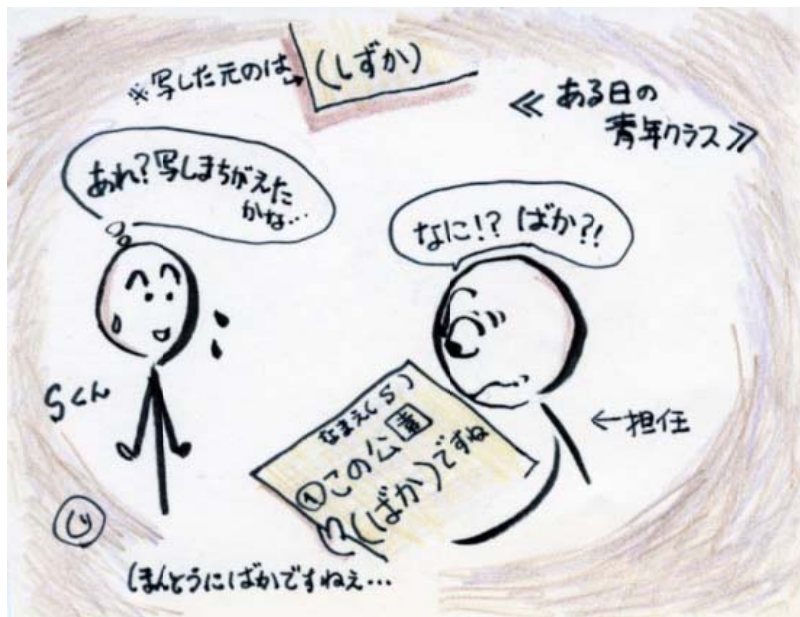 ※写した元のは→(しずか)
≪ある日の
青年クラス≫
あれ?写しまちがえた
かな…
なに!? ばか?!
Sくん
←担任
なまえ(S)
①この公園
(ばか)ですね
ほんとうにばかですねぇ…